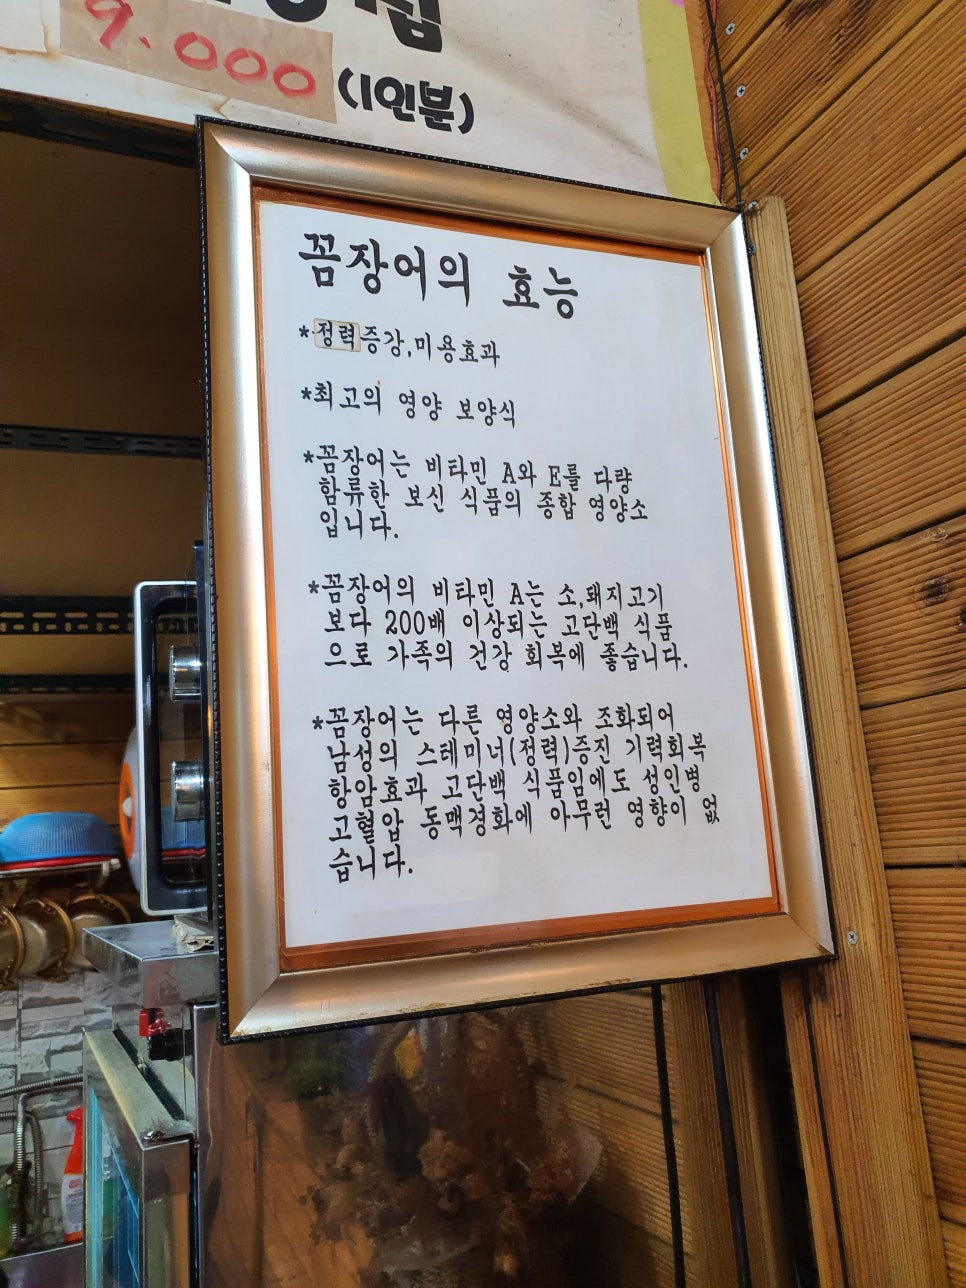 9.000 (1인분)
꼼장어의 효능
*정력증강,미용효과
*최고의 영양 보양식
*꼼장어는 비타민 A와 E를 다량
함류한 보신 식품의 종합 영양소
입니다.
*꼼장어의 비타민 A는 소,돼지고기
보다 200배 이상되는 고단백 식품
으로 가족의 건강 회복에 좋습니다.
*꼼장어는 다른 영양소와 조화되어
남성의 스테미너(정력)증진 기력회복
항암효과 고단백 식품임에도 성인병
고혈압 동맥경화에 아무런 영향이 없
습니다.